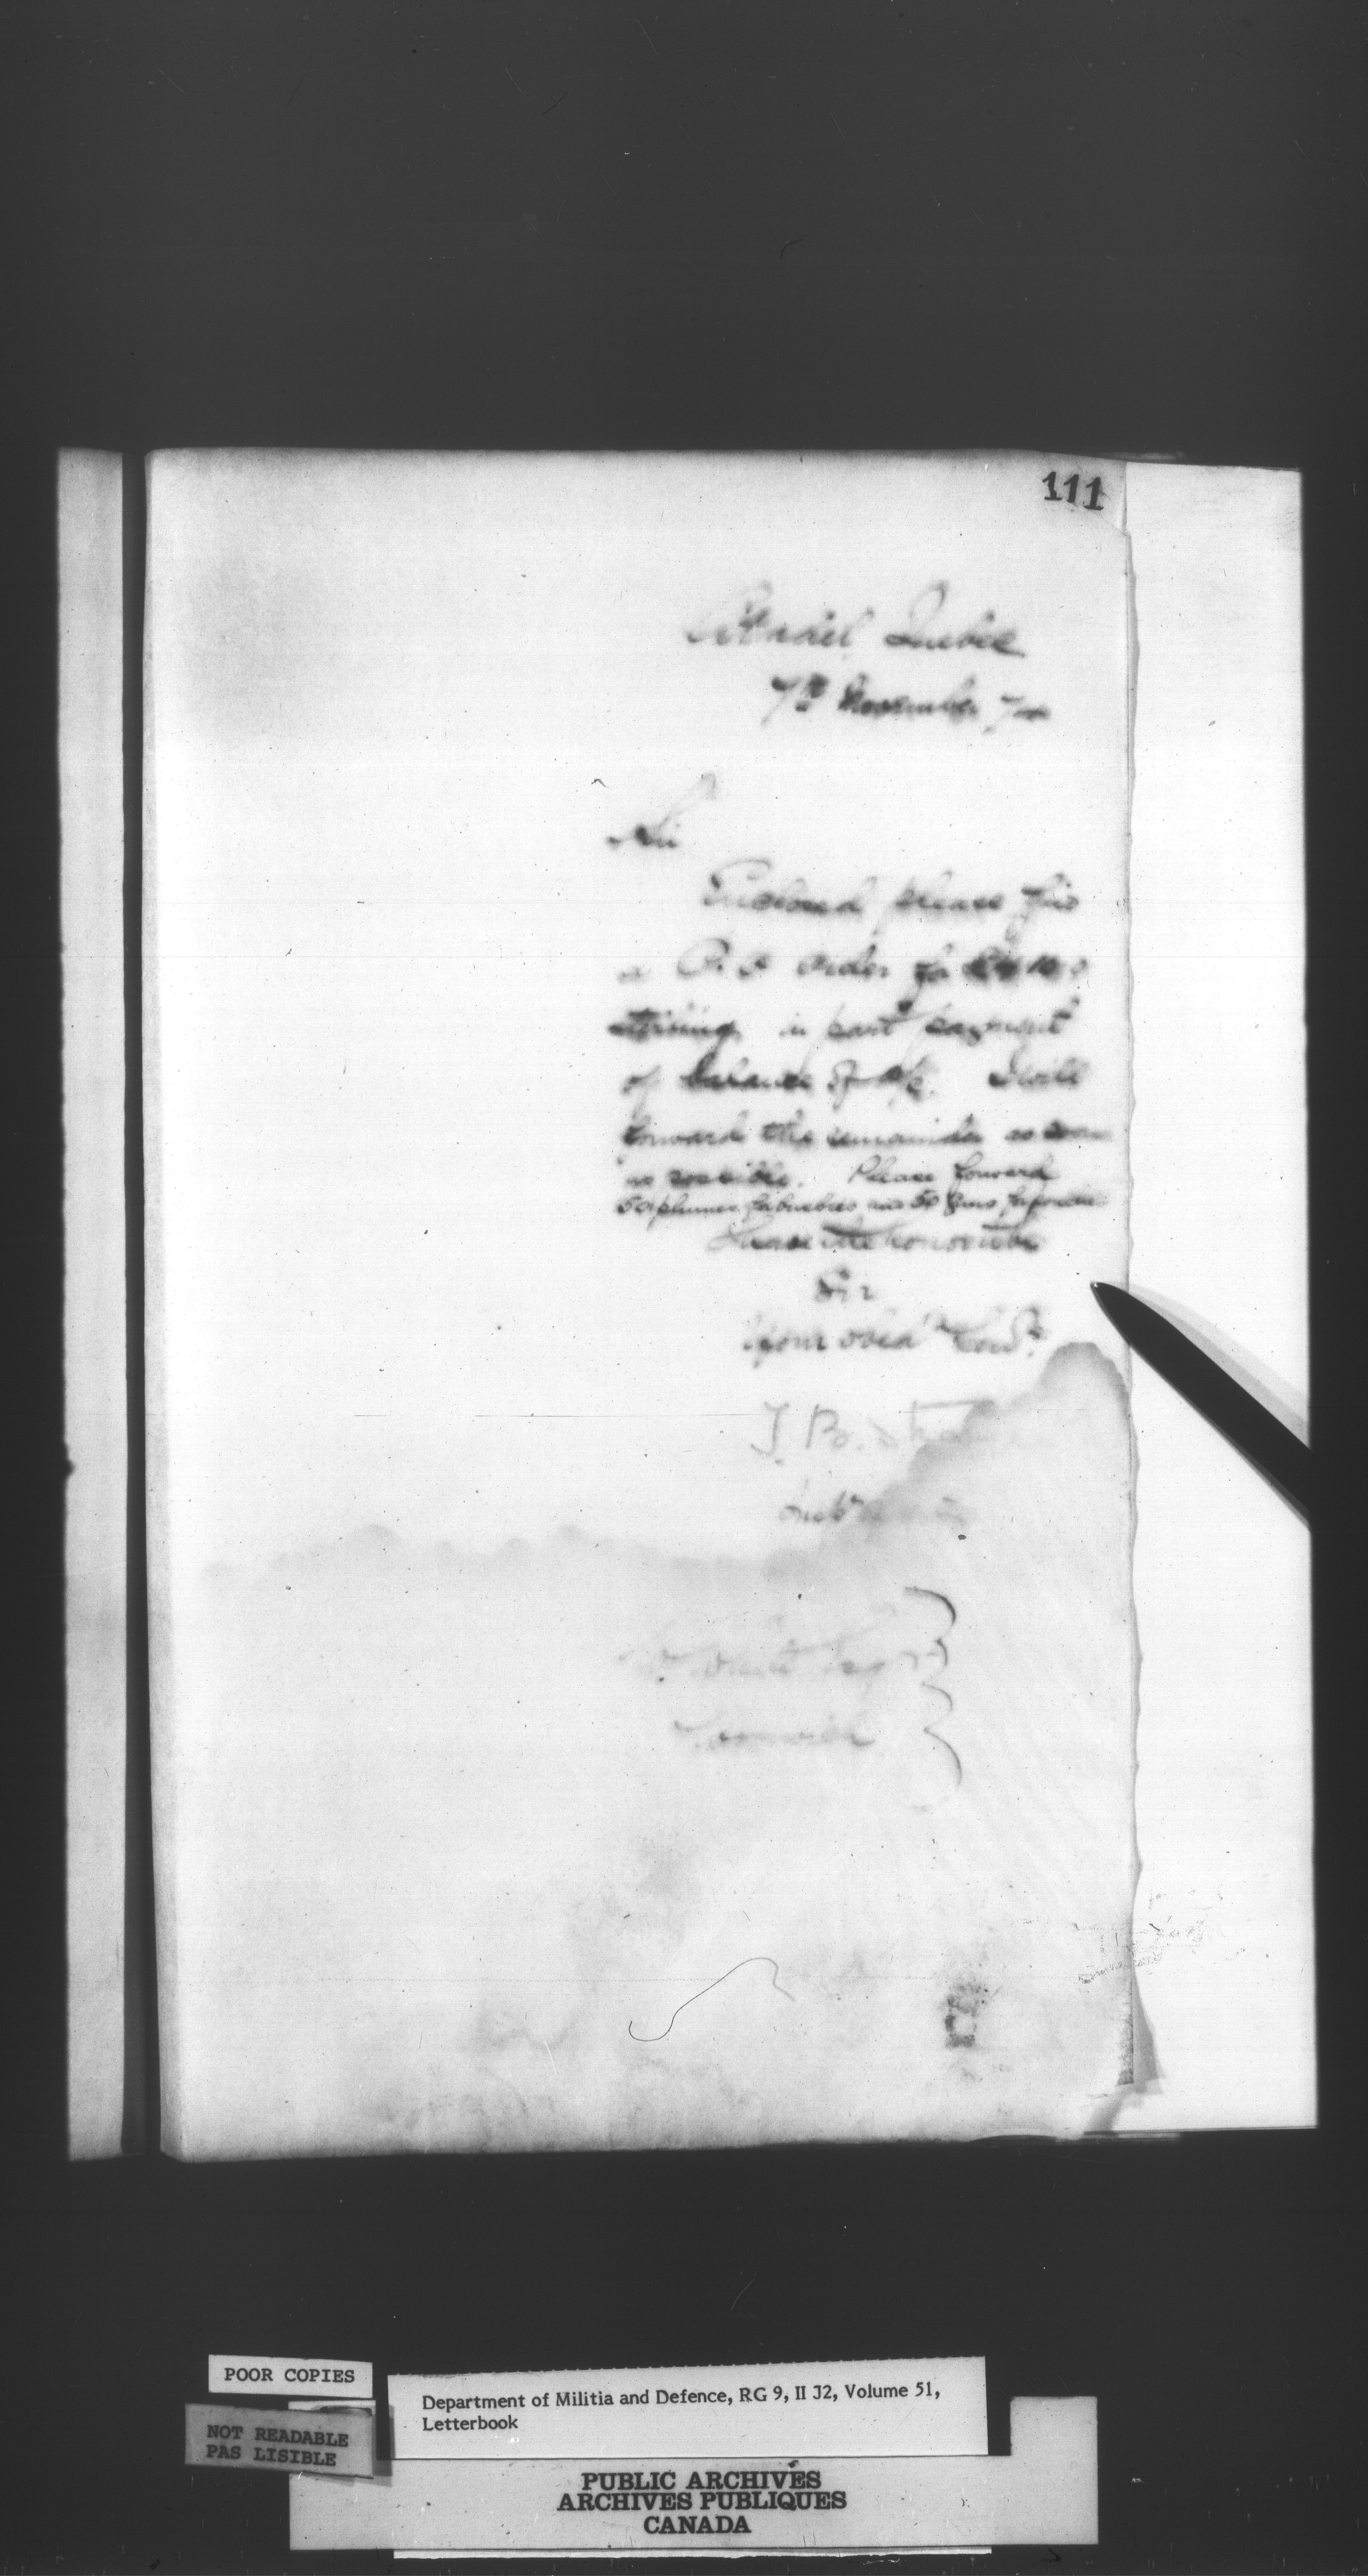 111
Citadel Quebec
7th November 74
Sir
Enclosed please find
a P.O order for
sterling in part payment
of balance of a/c. I will
forward the remainder as soon
as possible. Please forward
50 plumes for busbies and 50
I have the honor to be
Sir
Your obedt Servt
J. B.
POOR COPIES
NOT READABLE
PAS LISIBLE
Department of Militia and Defence, RG 9, II J2, Volume 51,
Letterbook
PUBLIC ARCHIVES
ARCHIVES PUBLIQUES
CANADA